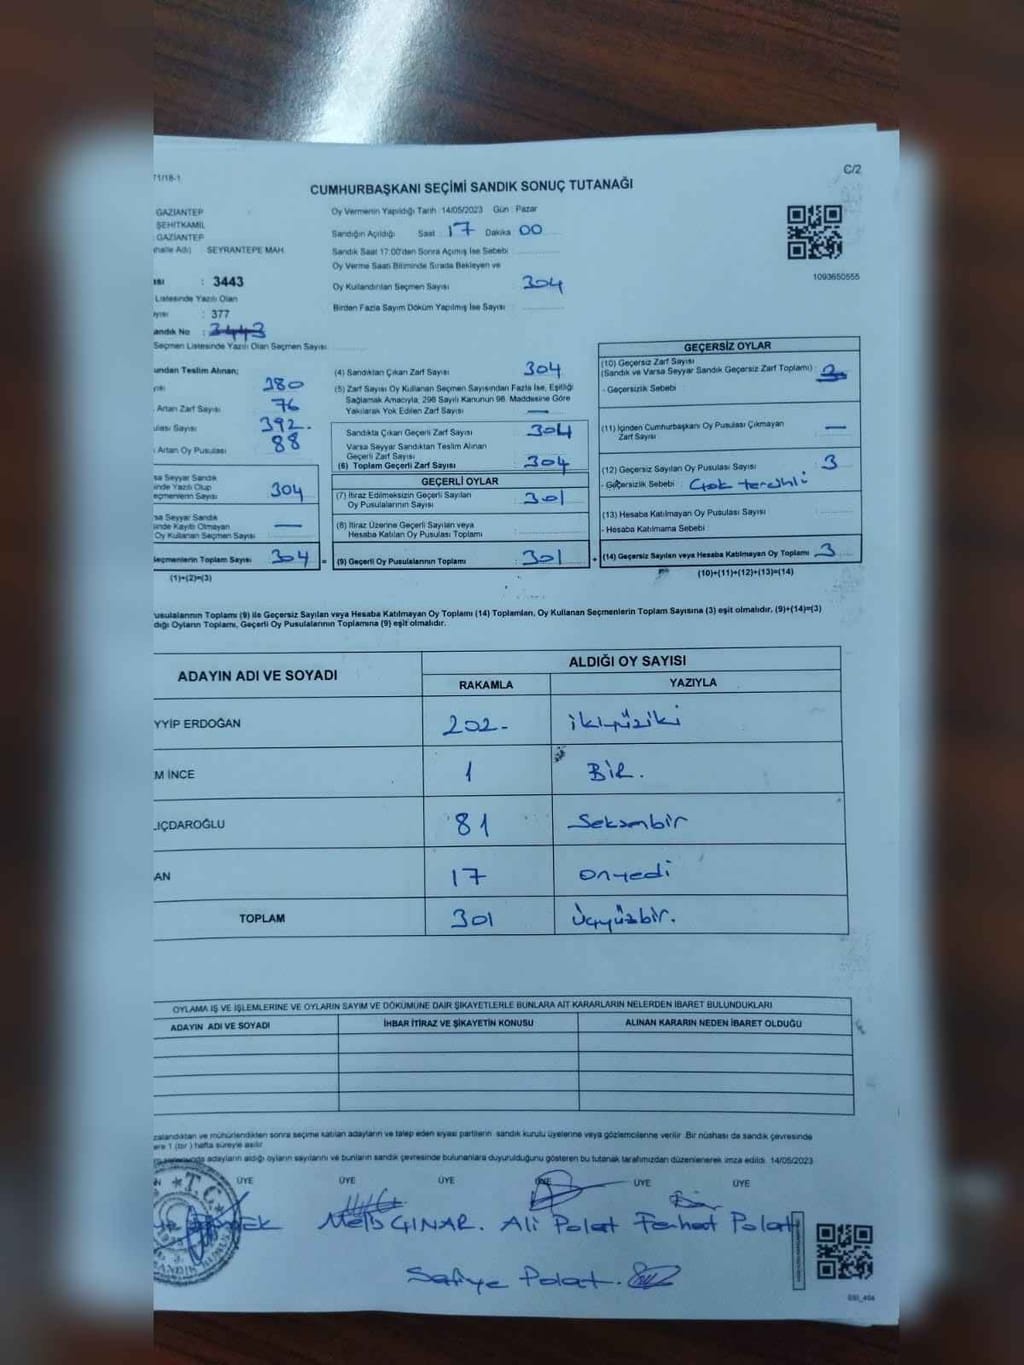 71/18-1
C/2
CUMHURBAŞKANI SEÇİMİ SANDIK SONUÇ TUTANAĞI
GAZİANTEP
ŞEHİTKAMİL
GAZİANTEP
SEYRANTEPE MAH.
: 3443
Listesinde Yazılı Olan
: 377
andık No : 3443
Seçmen Listesinde Yazılı Olan Seçmen Sayısı
Oy Vermenin Yapıldığı Tarih : 14/05/2023 Gün : Pazar
Sandığın Açıldığı Saat : 17 Dakika 00
Sandık Saat 17:00'den Sonra Açılmış İse Sebebi
Oy Verme Saati Bitiminde Sırada Bekleyen ve
Oy Kullandırılan Seçmen Sayısı 304
Birden Fazla Sayım Döküm Yapılmış İse Sayısı
1093650555
undan Teslim Alınan;
380
Artan Zarf Sayısı 76
392.
Artan Oy Pusulası 88
sa Seyyar Sandık
inde Yazılı Olup
eçmenlerin Sayısı 304
sa Seyyar Sandık
inde Kayıtlı Olmayan
Oy Kullanan Seçmen Sayısı —
eçmenlerin Toplam Sayısı 304 =
(1)+(2)=(3)
(4) Sandıktan Çıkan Zarf Sayısı 304
(5) Zarf Sayısı Oy Kullanan Seçmen Sayısından Fazla İse, Eşitliği
Sağlamak Amacıyla, 298 Sayılı Kanunun 98. Maddesine Göre
Yakılarak Yok Edilen Zarf Sayısı —
Sandıkta Çıkan Geçerli Zarf Sayısı 304
Varsa Seyyar Sandıktan Teslim Alınan
Geçerli Zarf Sayısı
(6) Toplam Geçerli Zarf Sayısı 304
GEÇERLİ OYLAR
(7) İtiraz Edilmeksizin Geçerli Sayılan
Oy Pusulalarının Sayısı 301
(8) İtiraz Üzerine Geçerli Sayılan veya
Hesaba Katılan Oy Pusulası Toplamı
(9) Geçerli Oy Pusulalarının Toplamı 301 +
GEÇERSİZ OYLAR
(10) Geçersiz Zarf Sayısı
(Sandık ve Varsa Seyyar Sandık Geçersiz Zarf Toplamı) :
- Geçersizlik Sebebi
(11) İçinden Cumhurbaşkanı Oy Pusulası Çıkmayan
Zarf Sayısı —
(12) Geçersiz Sayılan Oy Pusulası Sayısı 3
- Geçersizlik Sebebi : Çok tercihli
(13) Hesaba Katılmayan Oy Pusulası Sayısı
- Hesaba Katılmama Sebebi :
(14) Geçersiz Sayılan veya Hesaba Katılmayan Oy Toplamı 3
(10)+(11)+(12)+(13)=(14)
usulalarının Toplamı (9) ile Geçersiz Sayılan veya Hesaba Katılmayan Oy Toplamı (14) Toplamları, Oy Kullanan Seçmenlerin Toplam Sayısına (3) eşit olmalıdır. (9)+(14)=(3)
dığı Oyların Toplamı, Geçerli Oy Pusulalarının Toplamına (9) eşit olmalıdır.
ADAYIN ADI VE SOYADI
ALDIĞI OY SAYISI
RAKAMLA YAZIYLA
YYİP ERDOĞAN 202- ikiyüziki
M İNCE 1 BİR.
LIÇDAROĞLU 81 Seksenbir
AN 17 onyedi
TOPLAM 301 Üçyüzbir.
OYLAMA İŞ VE İŞLEMLERİNE VE OYLARIN SAYIM VE DÖKÜMÜNE DAİR ŞİKAYETLERLE BUNLARA AİT KARARLARIN NELERDEN İBARET BULUNDUKLARI
ADAYIN ADI VE SOYADI İHBAR İTİRAZ VE ŞİKAYETİN KONUSU ALINAN KARARIN NEDEN İBARET OLDUĞU
zalandıktan ve mühürlendikten sonra seçime katılan adayların ve talep eden siyasi partilerin sandık kurulu üyelerine veya gözlemcilerine verilir. Bir nüshası da sandık çevresinde
ere 1 (bir) hafta süreyle asılır.
adayların aldığı oyların sayılarını ve bunların sandık çevresinde bulunanlara duyurulduğunu gösteren bu tutanak tarafımızdan düzenlenerek imza edildi. 14/05/2023
ÜYE ÜYE ÜYE ÜYE ÜYE ÜYE
T.C.
Melis ÇINAR. Ali Polat Ferhat Polat
Safiye Polat.